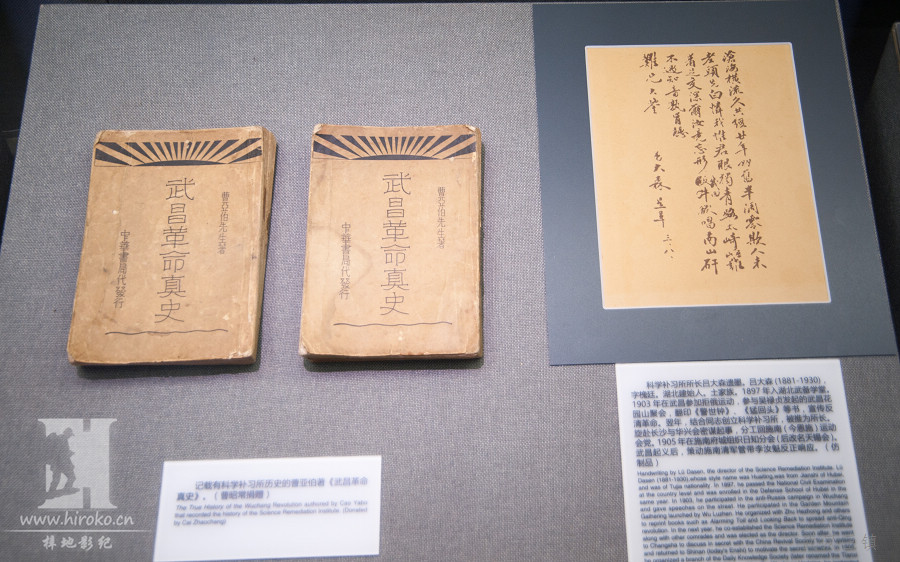 曹亞伯先生著
武昌革命真史
中華書局代發行
曹亞伯先生著
武昌革命真史
中華書局代發行
滄海橫流久共經廿年舊半凋零欺人未
老頭先白憐我惟君眼獨青路太崎嶇難
着足交深爾汝竟忘形飯牛敢唱南山矸
不遇知音孰肯聽
難兄大鑒
呂大森 呈草 三.八.
记载有科学补习所历史的曹亚伯著《武昌革命
真史》。（昭常捐赠）
The True History of the Wuchang Revolution authored by Cao Yabo
that recorded the history of the Science Remediation Institute. (Donated
by Cai Zhaochang)
科学补习所所长吕大森遗墨。吕大森 (1881-1930)，
字槐廷。湖北建始人。土家族。1897年入湖北武备学堂。
1903年在武昌参加拒俄运动，参与吴禄贞发起的武昌花
园山聚会，翻印《警世钟》、《猛回头》等书，宣传反
清革命。翌年，结合同志创立科学补习所，被推为所长。
旋赴长沙与华兴会密谋起事，分工回施南（今恩施）运动
会党。1905年在施南府城组织日知分会（后改名天锡会）。
武昌起义后，策动施南清军管带李汝魁反正响应。（仿
制品）
Handwriting by Lü Dasen, the director of the Science Remediation Institute. Lü
Dasen (1881-1930), whose style name was Huaiting, was from Jianshi of Hubei,
and was of Tujia nationality. In 1897, he passed the National Civil Examination
at the country level and was enrolled in the Defense School of Hubei in the
same year. In 1903, he participated in the anti-Russia campaign in Wuchang
and gave speeches on the street. He participated in the Garden Mountain
Gathering launched by Wu Luzhen. He organized with Zhu Hezhong and others
to reprint books such as Alarming Toll and Looking Back to spread anti-Qing
revolution. In the next year, he co-established the Science Remediation Institute
along with other comrades and was elected as the director. Soon after, he went
to Changsha to discuss in secret with the China Revival Society for an uprising
and returned to Shinan (today's Enshi) to motivate the secret societies. In 1905,
he organized a branch of the Daily Knowledge Society (later renamed the Tianxi
H
www.hiroko.cn
樺地影纪